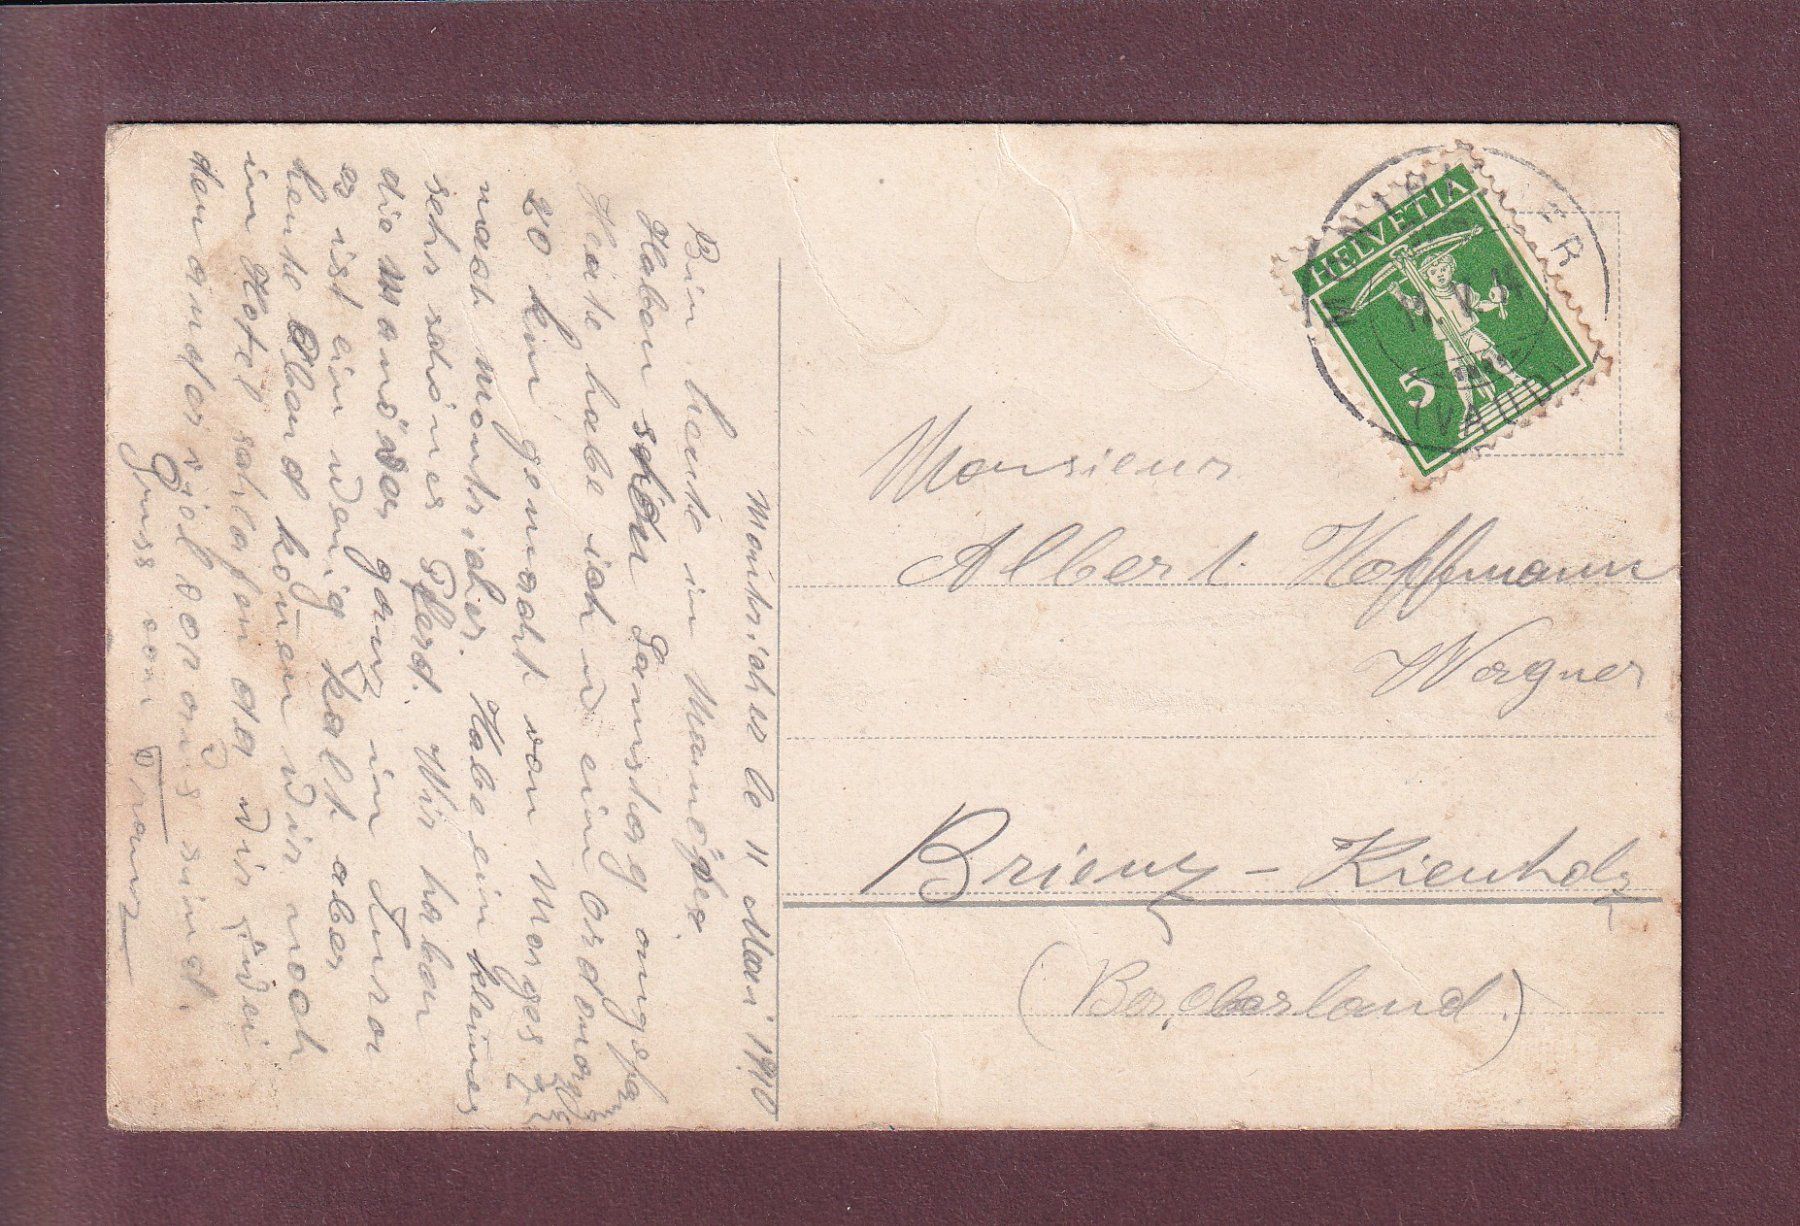 Montricher le 11 Mai 1910
Bin heute in Manöver.
Haben schon Samstag angefangen
Heute habe ich u ein Ordonanz
20 km gemacht von Morges
nach Montricher. Habe ein kleines
sehr schönes Pferd. Wir haben
die Manöver ganz im Jura
es ist ein wenig kalt aber
heute Abend können wir noch
im Hotel schlafen da wir
von Franz
Gruss
HELVETIA
5
MONTRICHER
(VAUD)
Monsieur
Albert Hoffmann
Wagner
Brienz - Kienholz
(Ber. Oberland.)